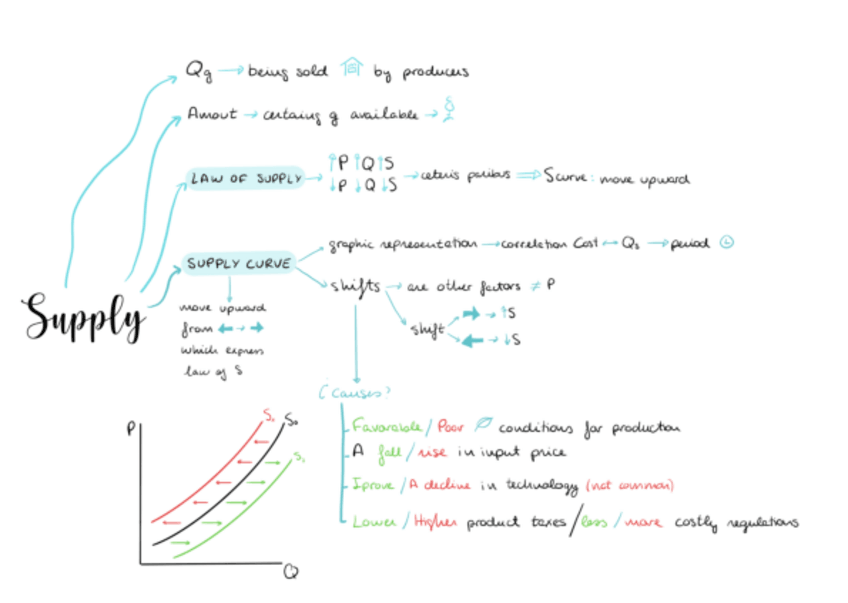 Qg → being sold by producers
Amout → certaing g available →
LAW OF SUPPLY → ↑P ↑Q ↑S
↓P ↓Q ↓S → ceteris paribus ⇒ Scurve: move upward
graphic representation → correlation Cost ↔ Qs → period
SUPPLY CURVE
shifts → are other factors ≠ P
Supply
move upward
from ← → →
which express
law of S
shift → → ↑S
← → ↓S
¿Causes?
Favorable / Poor conditions for production
A fall / rise in input price
Iprove / A decline in technology (not common)
Lower / Higher product taxes / less / more costly regulations
P
S₀
Q